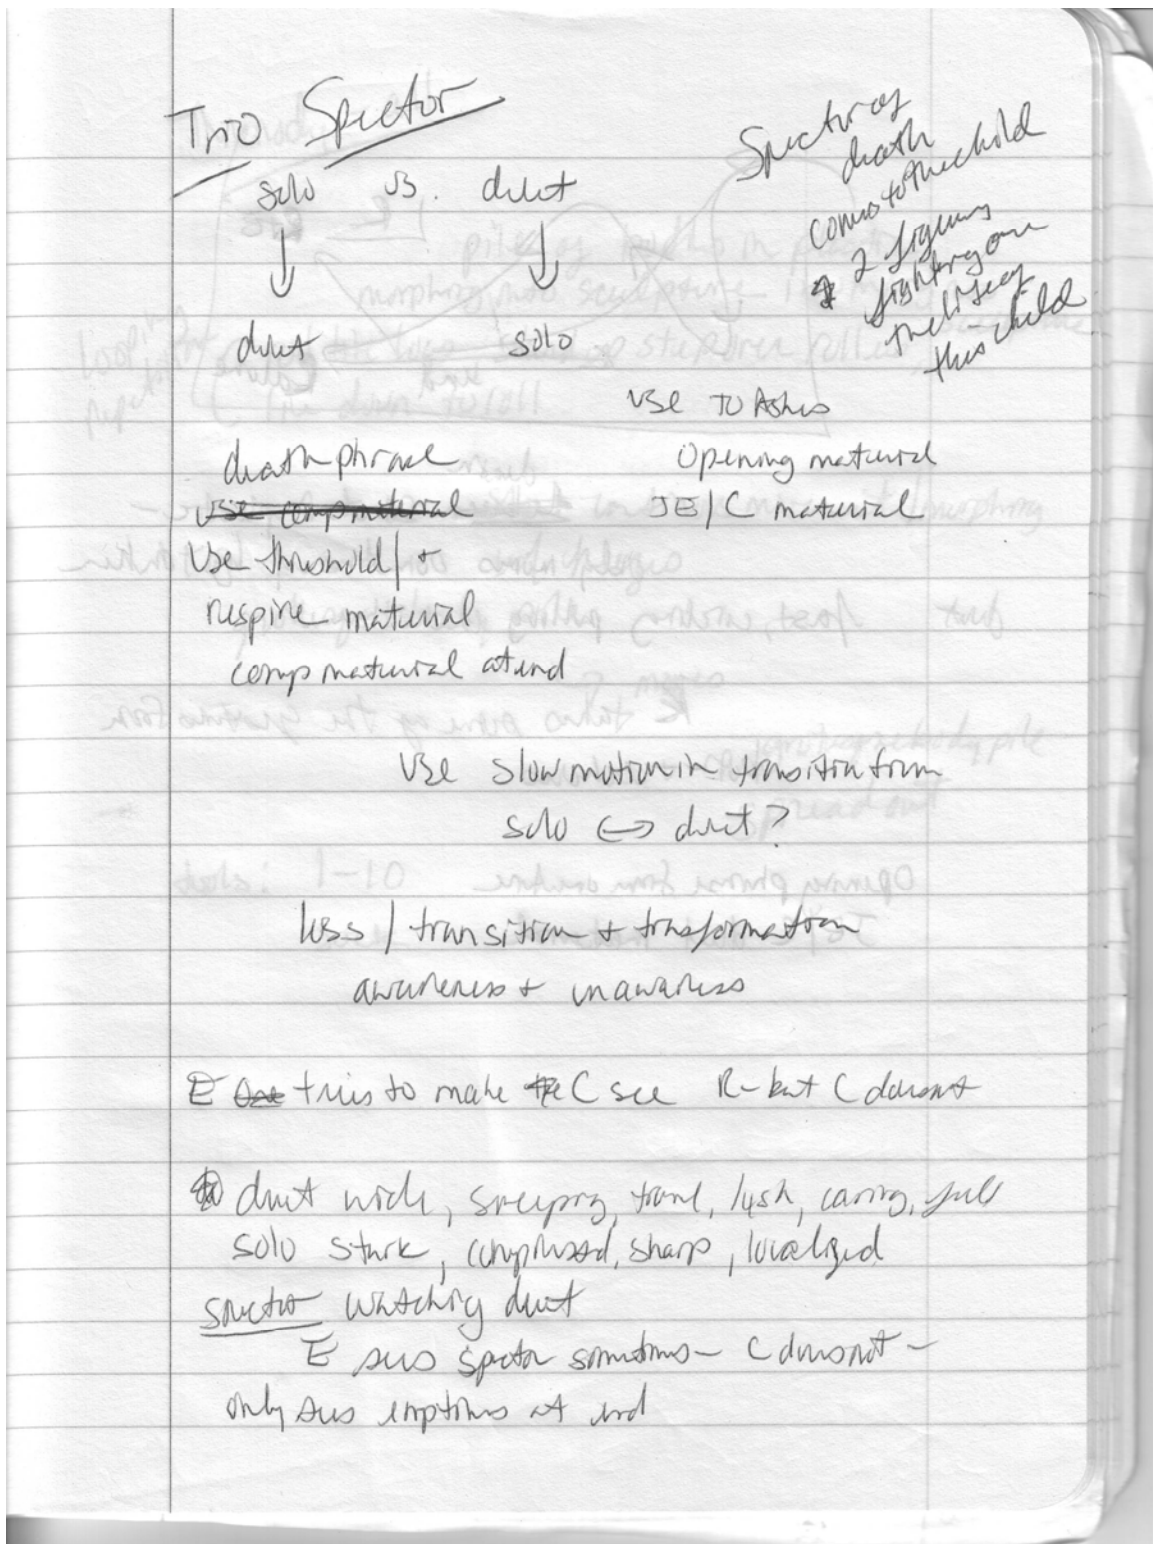 Trio Spector
solo vs. duet
duet solo
Spector of
death
comes to the child
2 figures
fighting over
the life of
this child
use to Ashes
death phrase Opening material
use comp material JE/C material
use threshold/+
respire material
comp material at end
use slow motion in transition from
solo ↔ duet?
loss / transition + transformation
awareness + unawareness
E tries to make C see R - but C doesnt
duet wide, sweeping, travel, lush, caring, full
solo stark, compressed, sharp, localized
spector watching duet
E sees spector sometimes - C does not -
only sees emptiness at end